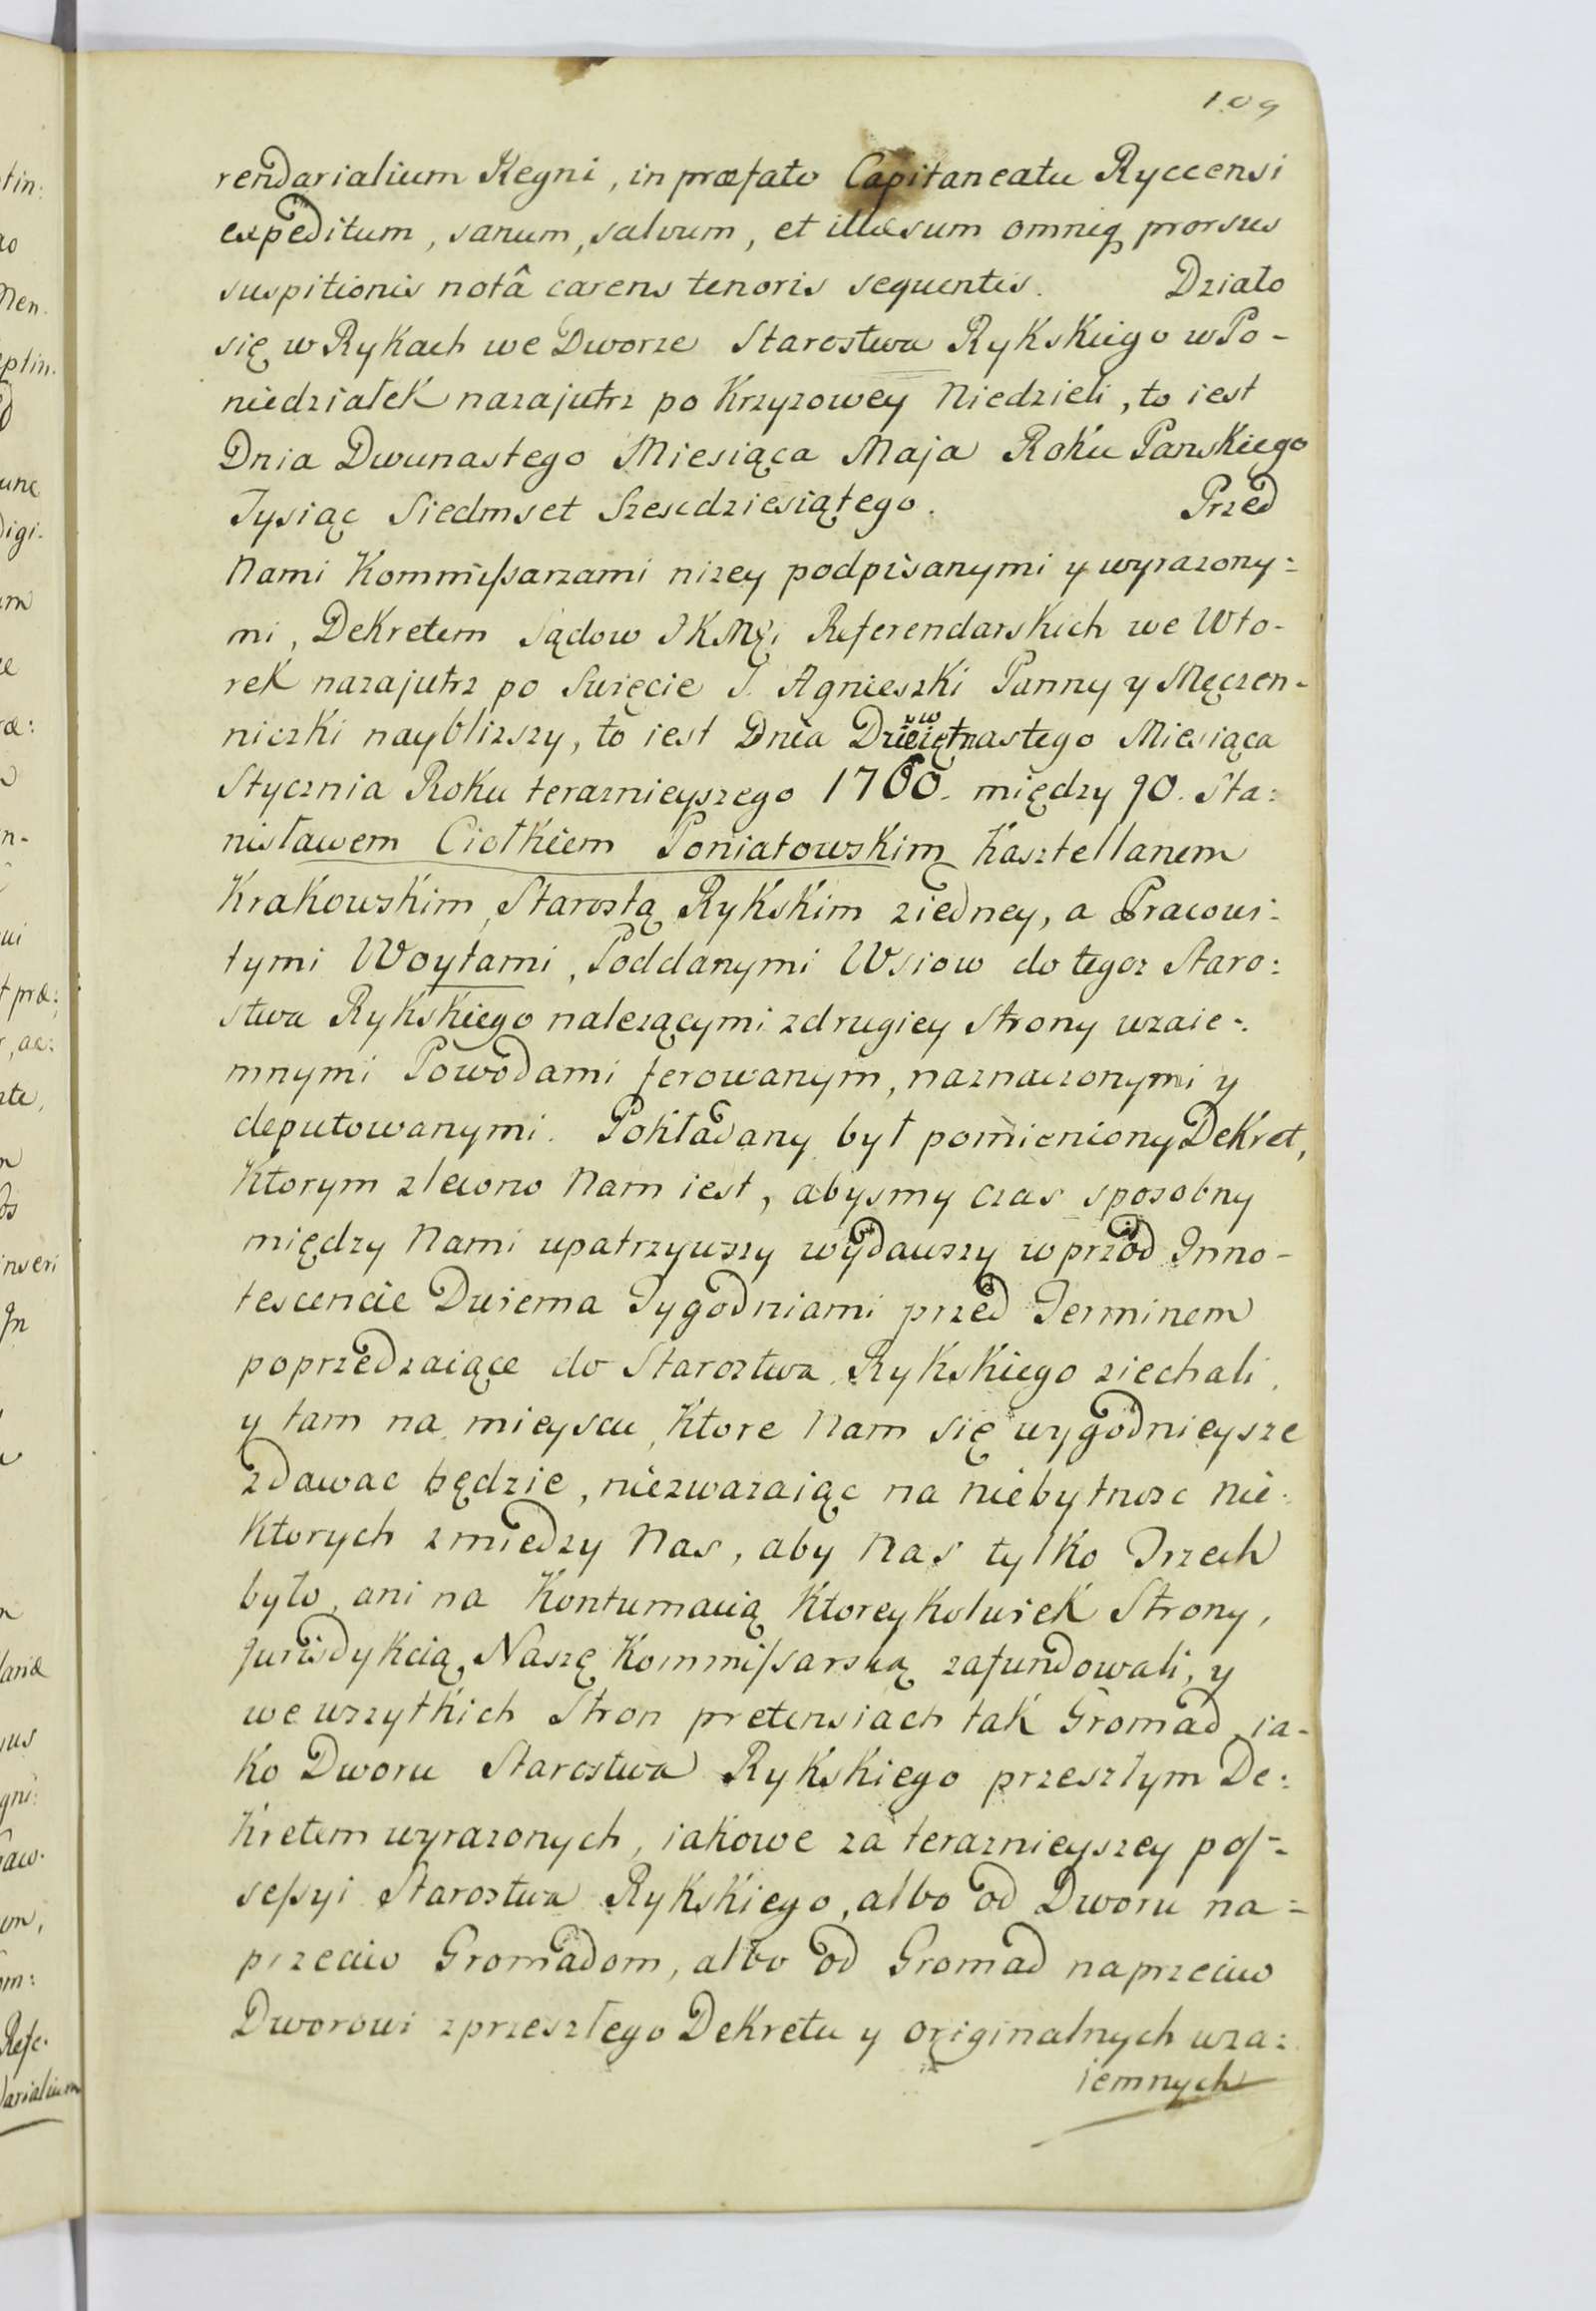 109
rendarialium Regni, in præfato Capitaneatu Ryccensi
expeditum, sanum, salvum, et illæsum omniq prorsus
suspitionis notâ carens tenoris sequentis. Działo
się w Rykach we Dworze Starostwa Rykskiego w Po-
niedziałek nazajutrz po Krzyzowey Niedzieli, to iest
Dnia Dwunastego Miesiąca Maja Roku Panskiego
Tysiąc Siedmset Szescdziesiątego. Przed
Nami Kommissarzami nizey podpisanymi y wyrazony:
mi, Dekretem Sądow JKMći Referendarskich we Wto-
rek nazajutrz po Swięcie S. Agnieszki Panny y Męczen-
niczki nayblizszy, to iest Dnia
Stycznia Roku teraznieyszego 1760. między JO. Sta:
nisławem Ciołkiem Poniatowskim Kasztellanem
Krakowskim, Starostą Rykskim ziedney, a Pracowi:
tymi Woytami, Poddanymi Wsiow do tegoz Staro:
stwa Rykskiego nalezącymi zdrugiey Strony wzaie-:
mnymi Powodami ferowanym, naznaczonymi y
deputowanymi. Pokładany był pomieniony Dekret,
Ktorym zlecono Nam iest, abysmy czas sposobny
między Nami upatrzywszy wydawszy wprzod Inno-
tescencie Dwiema Tygodniami przed Terminem
poprzedzaiące do Starostwa Rykskiego ziechali,
y tam na mieyscu, Ktore Nam się wygodnieysze
zdawac będzie, niezwazaiąc na niebytnosc nie-
Ktorych zmiedzy Nas, aby Nas tylko Trzech
było, ani na Kontumacią Ktoreykolwiek Strony,
Jurisdykcią Naszę Kommissarską zafundowali, y
we wszytkich Stron pretensiach tak Gromad, ia-
ko Dworu Starostwa Rykskiego przeszłym De:
kretem wyrazonych, iakowe za teraznieyszey pos-
sessyi Starostwa Rykskiego, albo od Dworu na=
przeciw Gromadom, albo od Gromad naprzeciw
Dworowi zprzeszłego Dekretu y originalnych wza:
iemnych